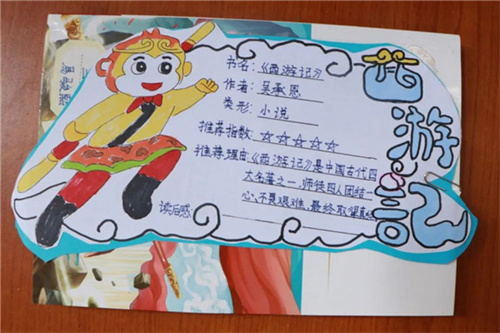 西游記
书名:《西游记》
作者:吴承恩
类形:小说
推荐指数:☆☆☆☆☆
推荐理由:《西游记》是中国古代四
大名著之一,师徒四人团结一
心,不畏艰难,最终取得真经
读后感: